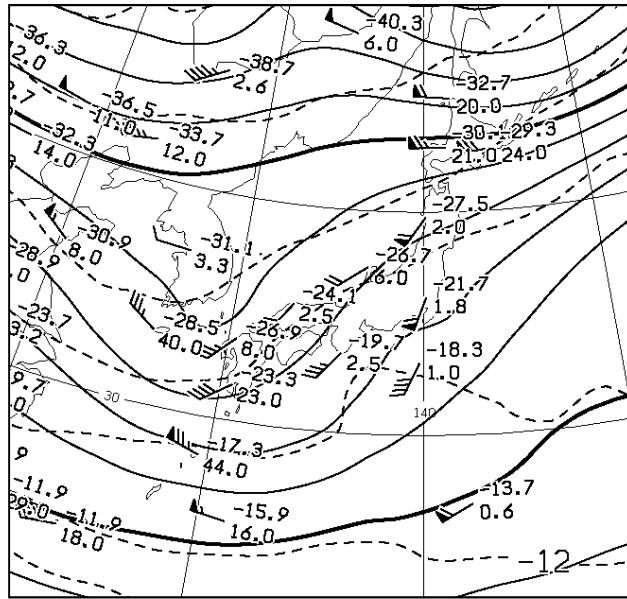 -40.3
6.0
-36.3
12.0
-38.7
2.6
-32.7
20.0
-36.5
11.0
-33.7
12.0
-29.3
21.0 24.0
-32.3
14.0
-27.5
2.0
-30.9
8.0
-31.1
3.3
-26.7
6.0
-28.9
.0
-24.1
2.5
-21.7
1.8
-23.7
3.2
-28.5
40.0
-26.9
8.0
-19.7
2.5
-18.3
1.0
-23.3
23.0
9.7
.0
30
140
-17.3
44.0
9
-11.9
-11.9
18.0
-15.9
16.0
-13.7
0.6
-12